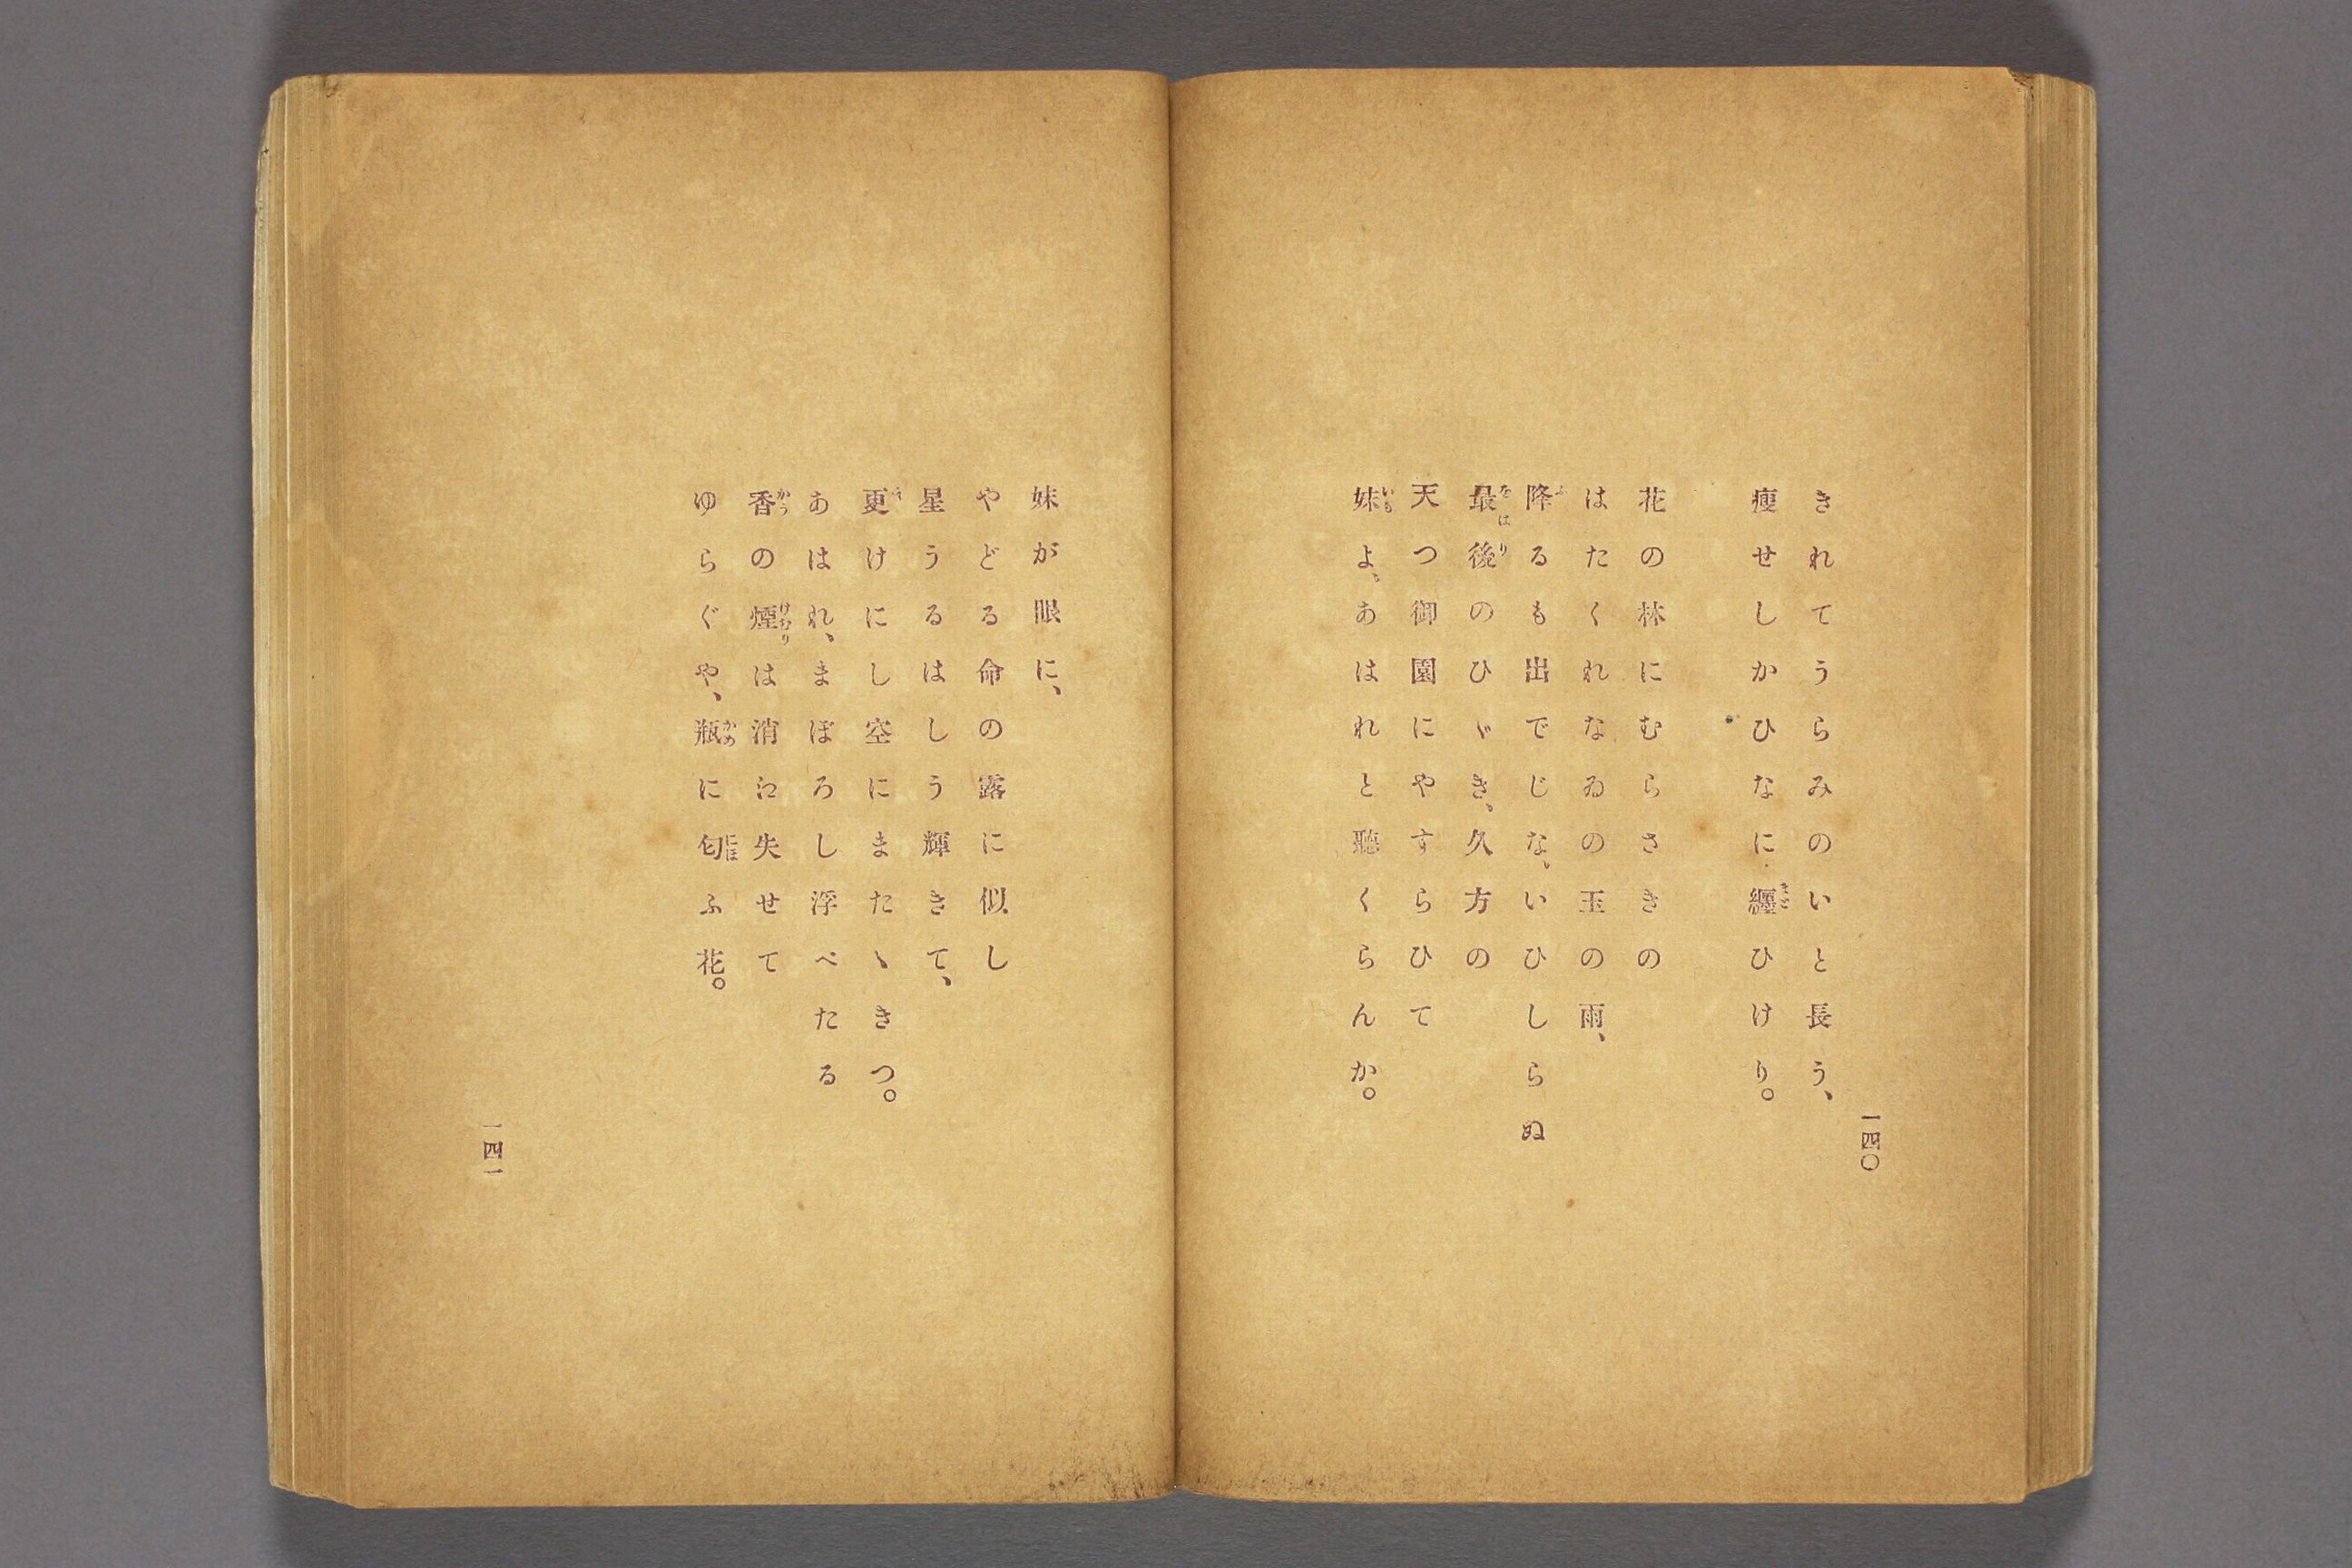 一四〇
きれてうらみのいと長う、
瘦せしかひなに纒ひけり。
花の林にむらさきの
はたくれなゐの玉の雨、
降るも出でじな、いひしらぬ
最後のひゞき、久方の
天つ御園にやすらひて
妹よ、あはれと聽くらんか。
妹が眼に、
やどる命の露に似し
星うるはしう輝きて、
更けにし空にまたゝきつ。
あはれ、まぼろし浮べたる
香の煙は消え失せて
ゆらぐや、瓶に匂ふ花。
一四一